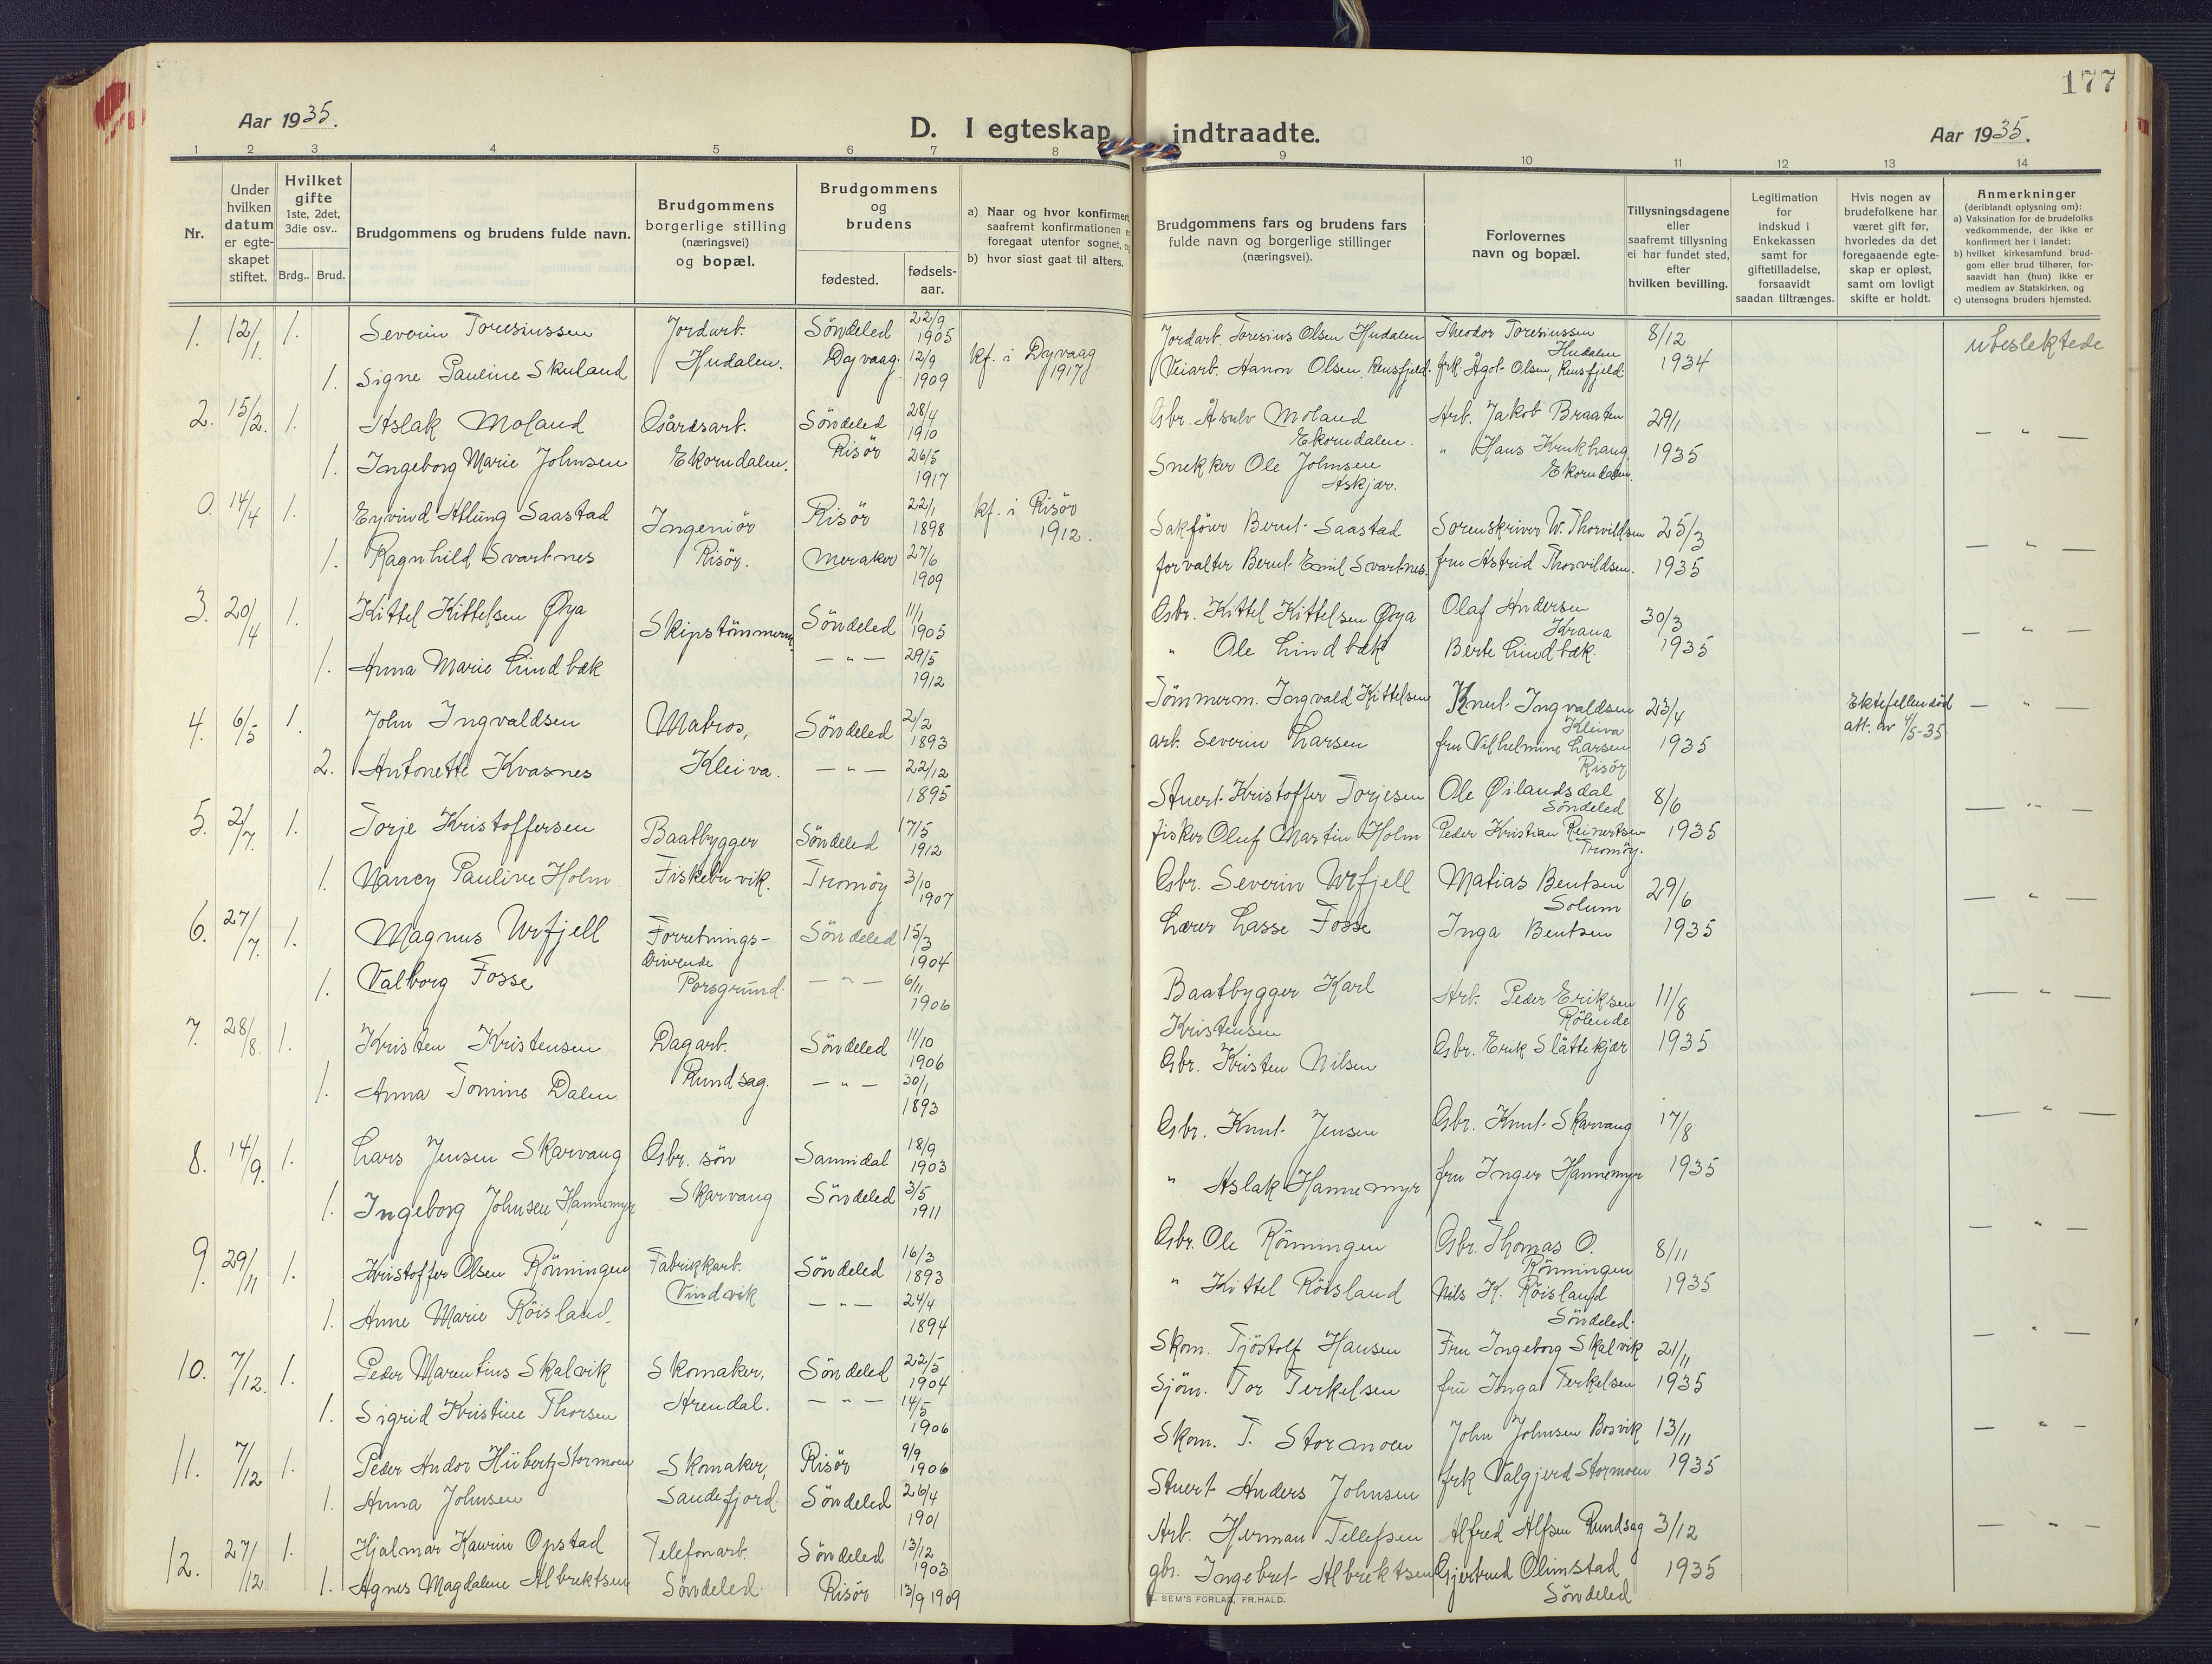 177
Aar 1935.
D. I egteskap indtraadte.
Aar 1935.
1 2 3 4 5 6 7 8 9 10 11 12 13 14
Nr.
Under hvilken datum er egte-skapet stiftet.
Hvilket gifte 1ste, 2det, 3die osv..
Brdg.. Brud.
Brudgommens og brudens fulde navn.
Brudgommens borgerlige stilling (næringsvei) og bopæl.
Brudgommens og brudens
fødested. fødsels-aar.
a) Naar og hvor konfirmert, saafremt konfirmationen foregaat utenfor sognet,
b) hvor sidst gaat til alters.
Brudgommens fars og brudens fars fulde navn og borgerlige stillinger (næringsvei).
Forlovernes navn og bopæl.
Tillysningsdagene eller saafremt tillysning ei har fundet sted, efter hvilken bevilling.
Legitimation for indskud i Enkekassen samt for giftetilladelse, forsaavidt saadan tiltrænges.
Hvis nogen av brudefolkene har været gift før, hvorledes da det foregaaende egte-skap er opløst, samt om lovligt skifte er holdt.
Anmerkninger
(deriblandt oplysning om):
a) Vaksination for de brudefolks vedkommende, der ikke er konfirmert her i landet;
b) hvilket kirkesamfund brud-gom eller brud tilhører, for-saavidt han (hun) ikke er medlem av Statskirken, og
c) utensogns bruders hjemsted.
1. 12/1. 1. Severin Toresiussen Jordarb. Söndeled 22/9 1905 Jordarb. Toresius Olsen Hudalen Theodor Toresiussen Hudalen 8/12 ubeslektede
1. Signe Pauline Skuland Hudalen. Dyvaag. 12/9 1909 kf. i Dyvaag 1917 Veiarb. Hanon Olsen, Rensfjeld. frk Ågot Olsen, Rensfjeld 1934
2. 15/2. 1. Aslak Moland Gårdsarb. Söndeled 28/4 1910 Gbr. Åsulv Moland Ekorndalen. Arb. Jakob Braaten 29/1 — " —
1. Ingeborg Marie Johnsen Ekorndalen. Risör 26/5 1917 Snekker Ole Johnsen Askjær. " Hans Krukhaug Ekorndalen. 1935
0. 14/4 1. Eyvind Atlung Saastad Ingeniör Risör 22/1 1898 kf. i Risör 1912. Sakförer Bernt Saastad Sorenskriver W. Thorvildsen 25/3 — " —
1. Ragnhild Svartnes Risör. Meraker 27/6 1909 forvalter Bernt Emil Svartnes. fru Astrid Thorvildsen. 1935
3. 20/4 1. Kittel Kittelsen Øya Skipstömmerm. Söndeled 11/1 1905 Gbr. Kittel Kittelsen Øya Olaf Andersen Krana 30/3 — " —
1. Anna Marie Lindbæk — " — 29/5 1912 " Ole Lindbæk Berte Lindbæk. 1935
4. 6/5 1. John Ingvaldsen Matros, Söndeled 2/2 1893 Tömmerm. Ingvald Kittelsen Knut Ingvaldsen Kleiva 23/4 Ektefellen död att. av 4/5-35 — " —
2. Antonette Kvasnes Kleiva. — " — 22/12 1895 arb. Severin Larsen fru Vilhelmine Larsen Risör 1935
5. 2/7. 1. Torje Kristoffersen Baatbygger Söndeled 17/5 1912 Stuert. Kristoffer Torjesen Ole Øilandsdal Söndeled 8/6 — " —
1. Nancy Pauline Holm Fiskebuvik. Tromöy 3/10 1907 fisker Oluf Martin Holm Peder Kristian Reinertsen Tromöy. 1935
6. 27/7. 1. Magnus Urfjell Forretnings- drivende Söndeled 15/3 1904 Gbr. Severin Urfjell Matias Bentsen Solum 29/6 — " —
1. Valborg Fosse Porsgrund. — " — 6/11 1906 Lærer Lasse Fosse Inga Bentsen 1935
7. 28/8. 1. Kristen Kristensen Dagarb. Söndeled 11/10 1906 Baatbygger Karl Kristensen Arb. Peder Eriksen Rölende 11/8 — " —
1. Anna Tomine Dalen Rundsag. — " — 30/1 1893 Gbr. Kristen Nilsen Gbr. Erik Slåttekjær 1935
8. 14/9. 1. Lars Jensen Skarvang Gbr. sön Sannidal 18/9 1903 Gbr. Knut Jensen Gbr. Knut Skarvang 17/8 — " —
1. Ingeborg Johnsen Hannemyr Skarvang Söndeled 3/5 1911 " Aslak Hannemyr fru Inger Hannemyr 1935
9. 29/11 1. Kristoffer Olsen Rönningen Fabrikkarb. Söndeled 16/3 1893 Gbr. Ole Rönningen Gbr. Thomas O. Rönningen 8/11 — " —
1. Anne Marie Röisland. Vindvik — " — 24/4 1894 " Kittel Röisland Nils K. Röisland Söndeled. 1935
10. 7/12. 1. Peder Marentius Skalvik Skomaker, Söndeled 22/5 1904 Skom. Tjöstolf Hansen Fru Ingeborg Skalvik 21/11 — " —
1. Sigrid Kristine Thorsen Arendal. — " — 14/5 1906 Sjöm. Tor Terkelsen fru Inga Terkelsen 1935
11. 7/12 1. Peder Andor Hübertz Stormoen Skomaker, Risör 9/9 1906 Skom. T. Stormoen John Johnsen Bosvik 13/11 — " —
1. Anna Johnsen Sandefjord. Söndeled 26/4 1901 Stuert Anders Johnsen frk Valgjerd Stormoen 1935
12. 27/12 1. Hjalmar Kaurin Opstad Telefonarb. Söndeled 13/12 1903 Arb. Herman Tellefsen Alfred Alfsen Rundsag 3/12 — " —
1. Agnes Magdalene Albrektsen Söndeled. Risör 13/9 1909 gbr. Ingebret Albrektsen Gjertrud Olimstad Söndeled 1935
SEM'S FORLAG, FR.HALD.